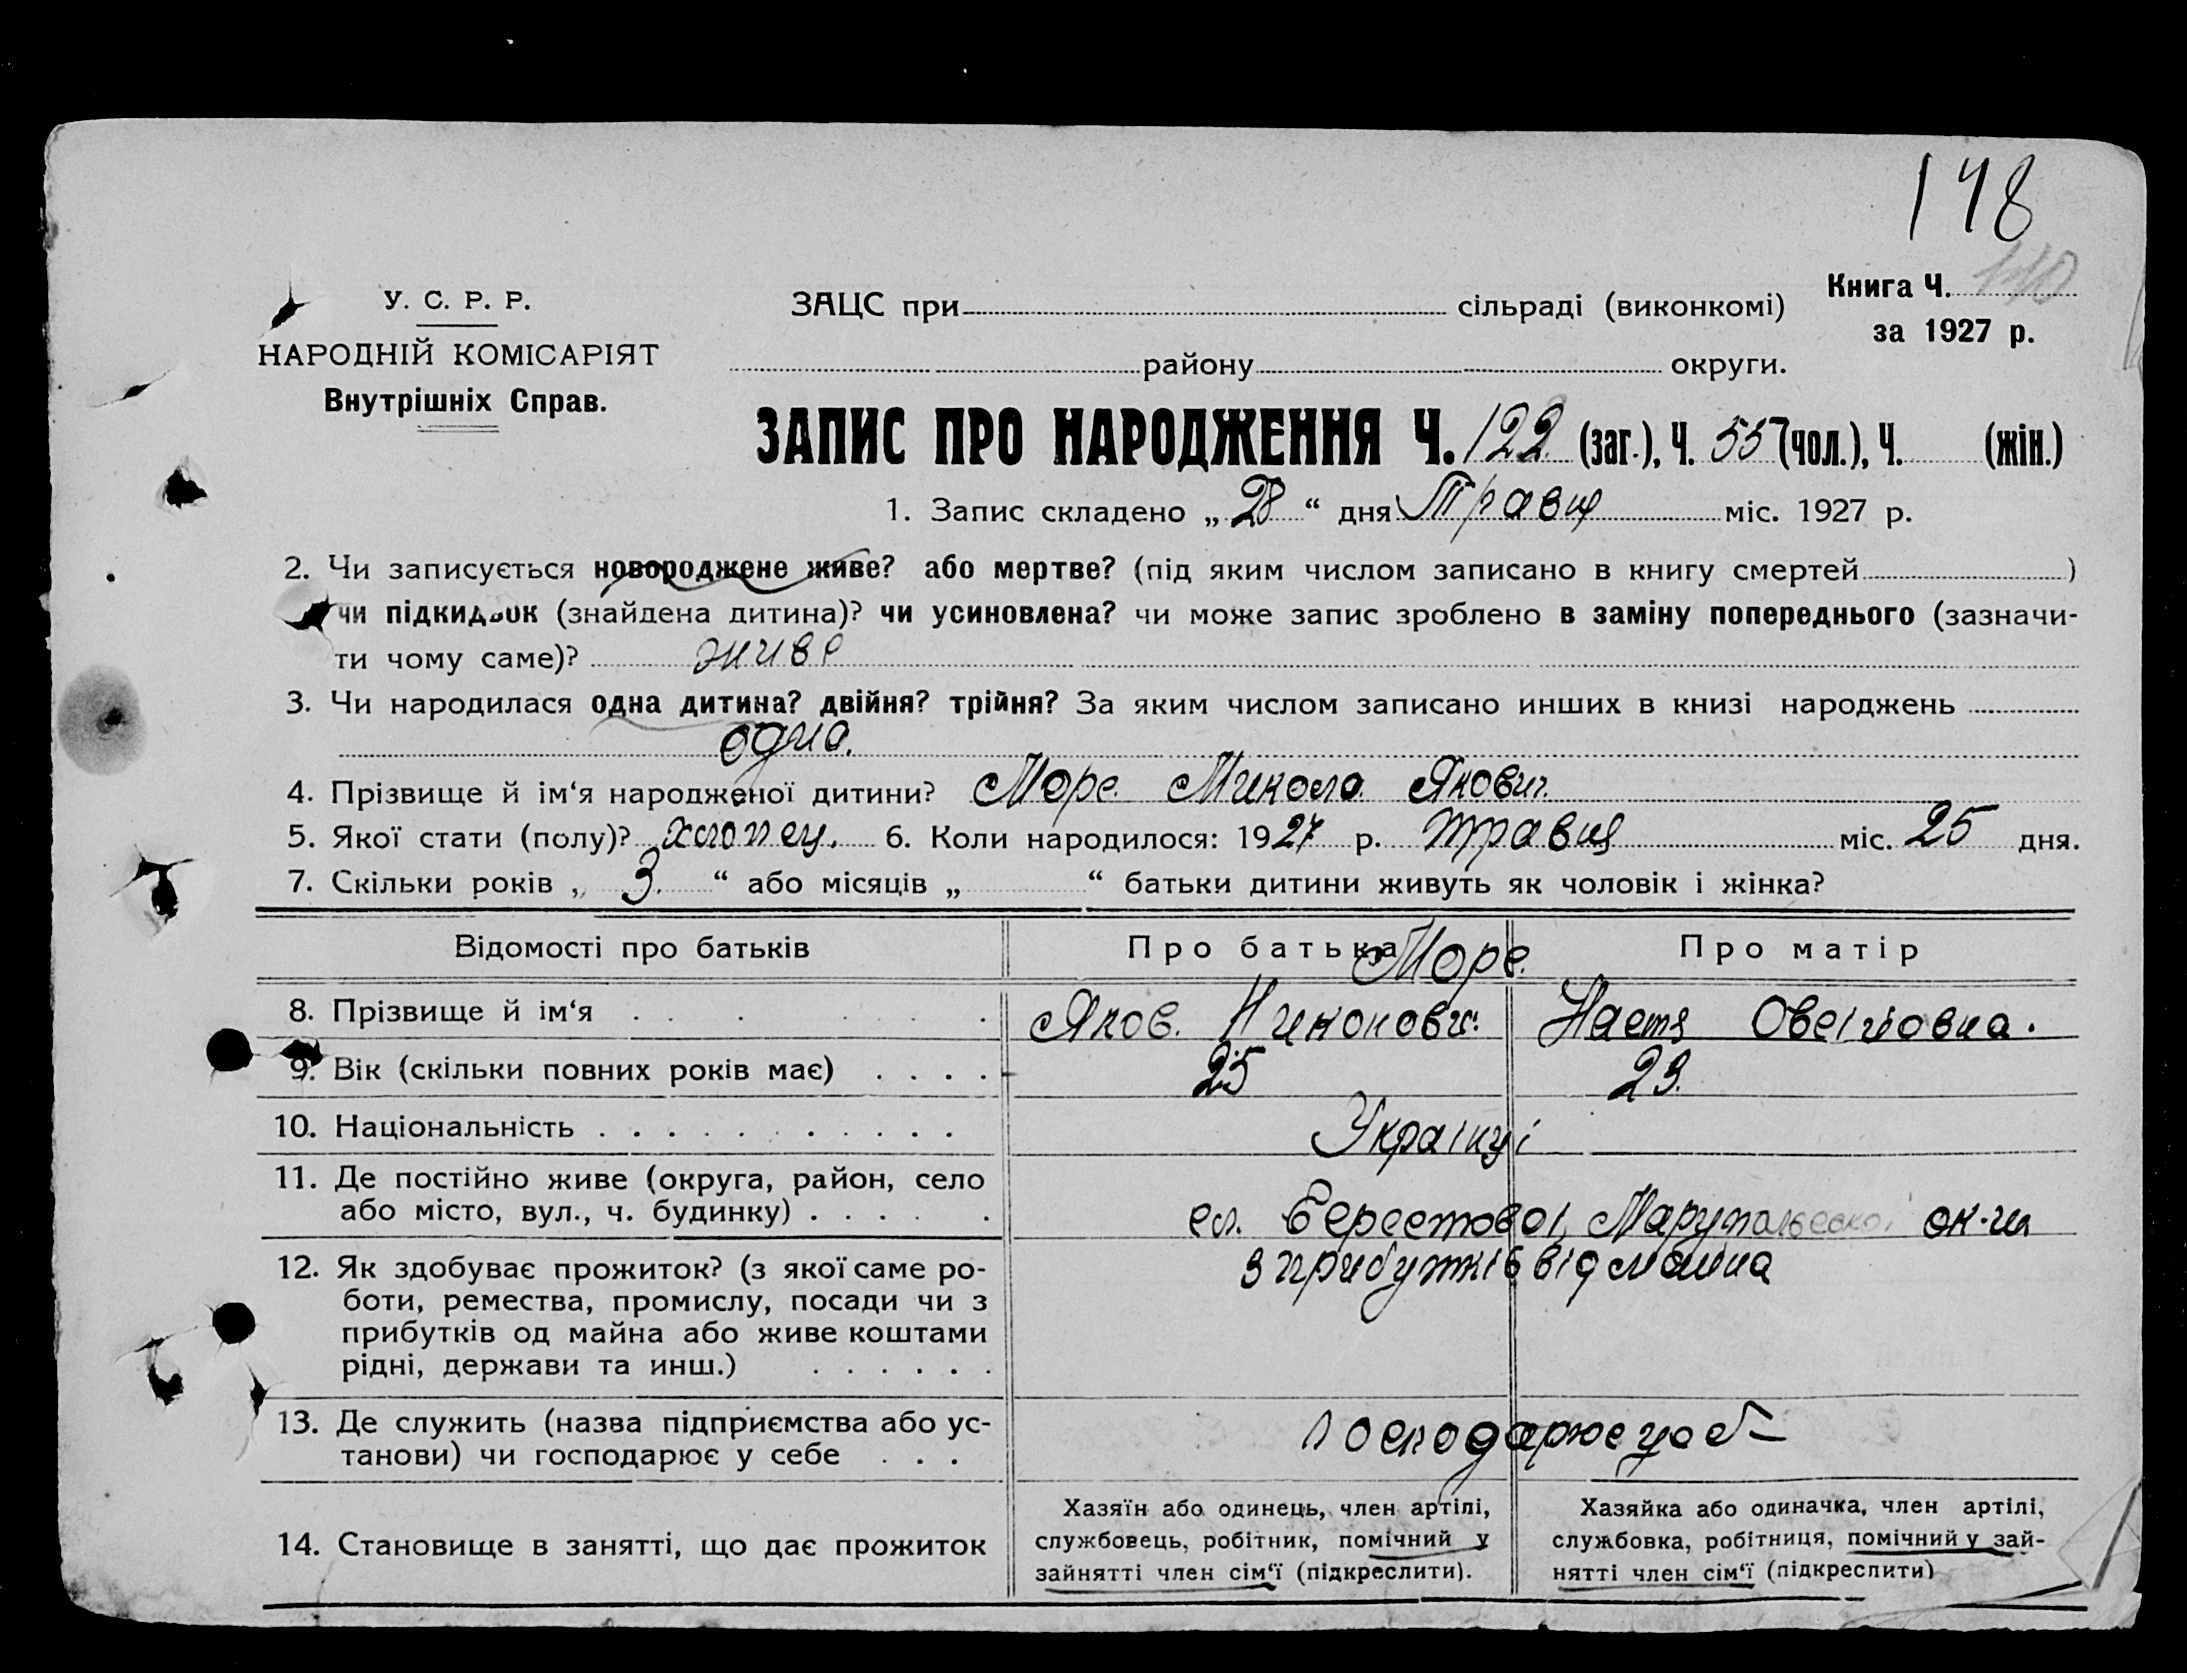 148
У. С. Р. Р.
НАРОДНІЙ КОМІСАРІЯТ
Внутрішніх Справ.
ЗАЦС при сільраді (виконкомі)
Книга Ч. 110
за 1927 р.
району округи.
ЗАПИС ПРО НАРОДЖЕННЯ Ч. 122 (заг.), Ч. 557 (чол.), Ч. (жін.)
1. Запис складено „ 28 “ дня Травц міс. 1927 р.
2. Чи записується новороджене живе? або мертве? (під яким числом записано в книгу смертей )
чи підкидьок (знайдена дитина)? чи усиновлена? чи може запис зроблено в заміну попереднього (зазначи-
ти чому саме)? живе
3. Чи народилася одна дитина? двійня? трійня? За яким числом записано инших в книзі народжень
одна.
4. Прізвище й ім‘я народженої дитини? Море Микола Якович
5. Якої стати (полу)? хлопец. 6. Коли народилося: 1927 р. травц міс. 25 дня.
7. Скільки років „ 3. “ або місяців „ “ батьки дитини живуть як чоловік і жінка?
Відомості про батьків Про батька Про матір
Море
8. Прізвище й ім‘я Яков. Никонович Настя
9. Вік (скільки повних років має) 25 23.
10. Національність Українці
11. Де постійно живе (округа, район, село
або місто, вул., ч. будинку) сл. Берестової, Марупольської ок-ги
12. Як здобуває прожиток? (з якої саме ро-
боти, ремества, промислу, посади чи з
прибутків од майна або живе коштами
рідні, держави та инш.)
з прибутків від майна
13. Де служить (назва підприємства або ус-
танови) чи господарює у себе
господарює у себ
14. Становище в занятті, що дає прожиток
Хазяїн або одинець, член артілі,
службовець, робітник, помічний у
зайнятті член сім‘ї (підкреслити).
Хазяйка або одиначка, член артілі,
службовка, робітниця, помічний у зай-
нятті член сім‘ї (підкреслити)